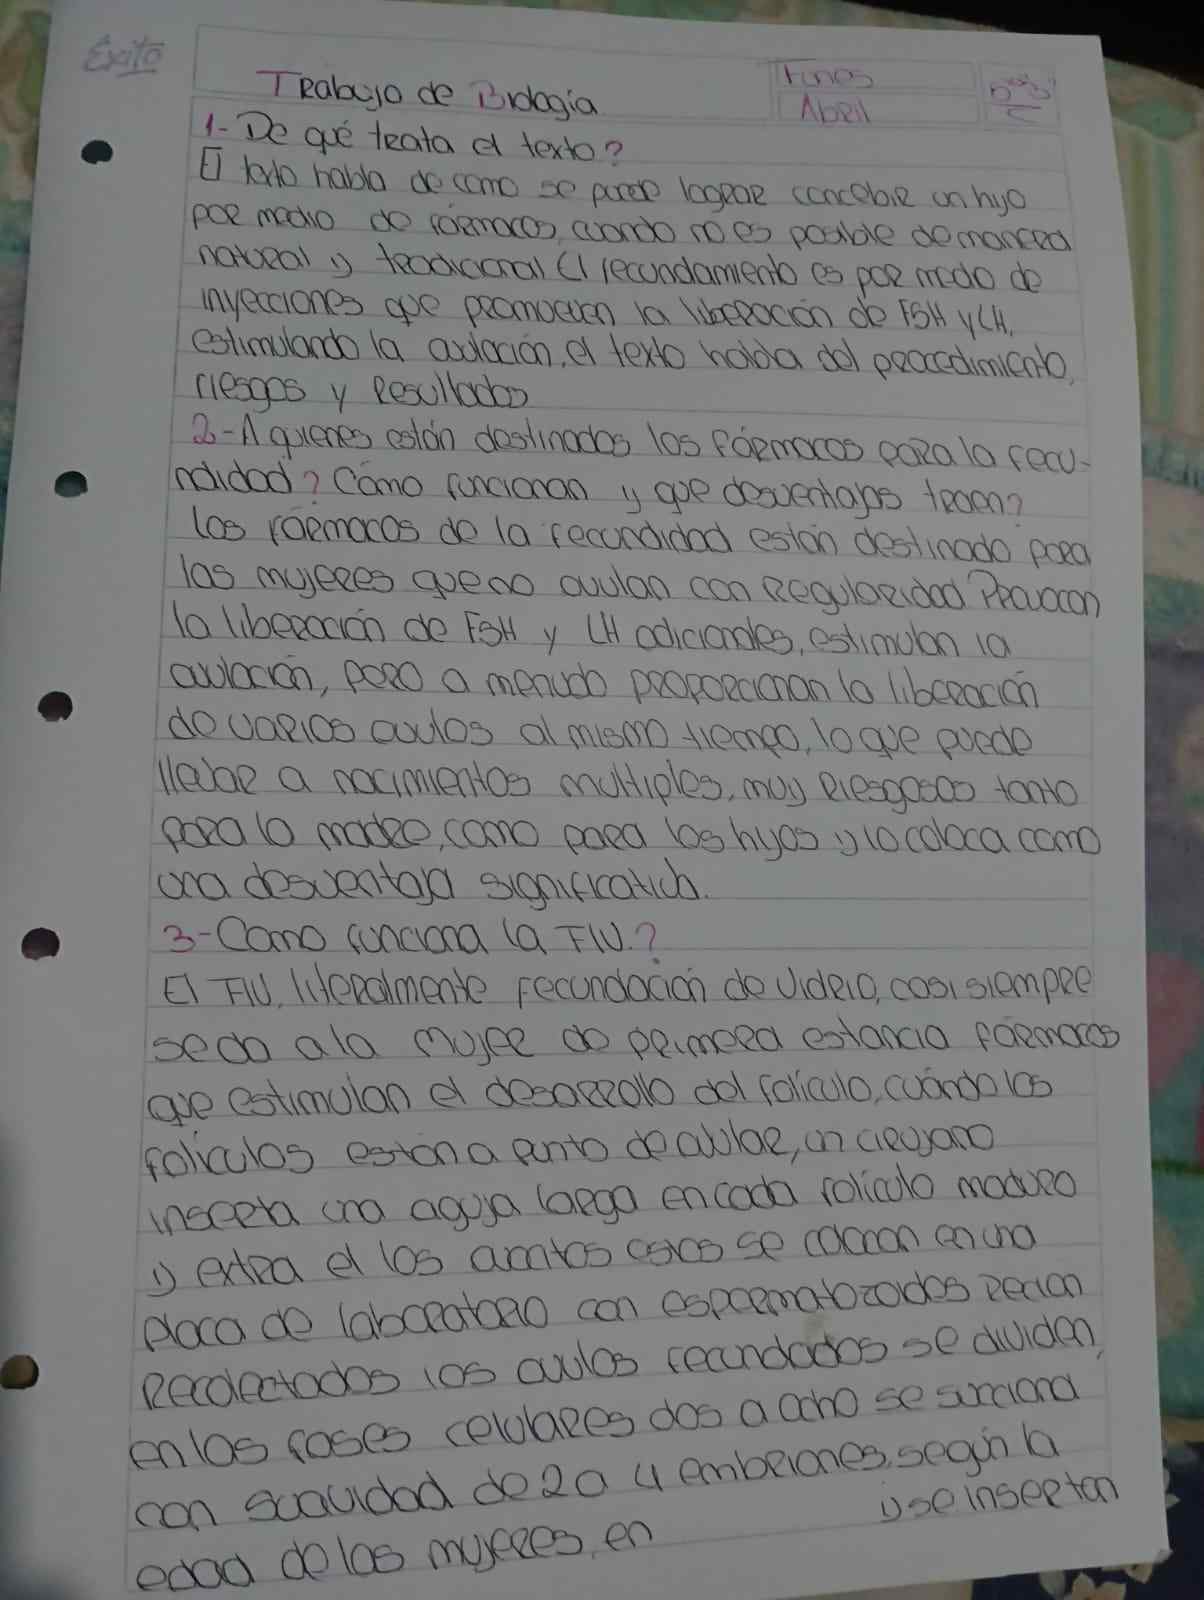 Éxito
Trabajo de Biología
Funes
Abril
1- De qué trata el texto?
El texto habla de como se puede lograr concebir un hijo
por medio de fármacos, cuando no es posible de manera
natural y tradicional El fecundamiento es por medio de
inyecciones que promueven la liberación de FSH y LH,
estimulando la ovulación, el texto habla del procedimiento,
riesgos y resultados
2- A quienes están destinados los fármacos para la fecu-
ndidad? Cómo funcionan y que desventajas traen?
Los fármacos de la fecundidad están destinado para
las mujeres que no ovulan con regularidad Provocan
la liberación de FSH y LH adicionales, estimulan la
ovulación, pero a menudo proporcionan la liberación
de varios ovulos al mismo tiempo, lo que puede
llevar a nacimientos multiples, muy riesgosos tanto
para la madre, como para los hijos y lo coloca como
una desventaja significativa.
3- Como funciona la FIV.?
El FIV, literalmente fecundación de vidrio, casi siempre
se da a la mujer de primera estancia fármacos
que estimulan el desarrollo del folículo, cuándo los
folículos están a punto de ovular, un cirujano
inserta una aguja larga en cada folículo maduro
y extra el los ovcitos estos se colocan en una
placa de laboratorio con espermatozoides recien
recolectados los ovulos fecundados se dividen,
en las fases celulares dos a ocho se succiona
con suavidad de 2 a 4 embriones, según la
edad de las mujeres, en y se insertan